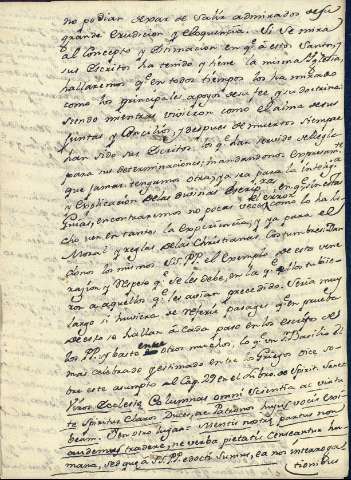 no podian dexar de salir admirados de su
grande erudicion y eloquencia. Si se mira
al Concepto y estimacion en qᵉ à estos Santos, y
sus Escritos ha tenido y tiene la misma Iglesia,
hallaremos qᵉ en todos tiempos los ha mirado
como los principales apoyos de su fee y su doctrina:
siendo mientras vivieron como el alma de sus
Juntas y Concilios, y despues de muertos siempre
han sido sus Escritos los qᵉ han servido de Regla
para sus determinaciones; mandandonos
que jamas tengamos otra, ya sea para la inteligᵃ
y explicacion de las divinas Escrip.ras, en qᵉ sin estas
Guias, encontraremos no pocas veces como lo ha he
cho ver en tantos la experiencia; y ya para el
Moral y reglas de las Christianas Costumbres, Dan
donos los mismos SS. PP. el exemplo de esta vene
racion y respeto qᵉ se les debe, en la qᵉ ellos tubie
ron a aquellos qᵉ les avian precedido. Seria muy
largo si huviese de referir pasages qᵉ en prueba
de esto se hallan à cada paso en los escritos de
los PP. y baste entre otros muchos, lo qᵉ un Sⁿ Basilio el
mas celebrado y estimado entre los Griegos dice so
bre este asumpto al Cap. 29 en el Libro de Spirit. Sancto
Viros Ecclesie Columnas omni Scientia ac virtu
te Spiritus Claros Duces, ac Patronos hujus vocis
beam. Y en otro lugar: Mentis nostre partus non
audemus tradere, ne verba pietatis Conseantur hu
mana, sed quæ à SS. PP. edocti sumus, ea nos interroga
tionibus